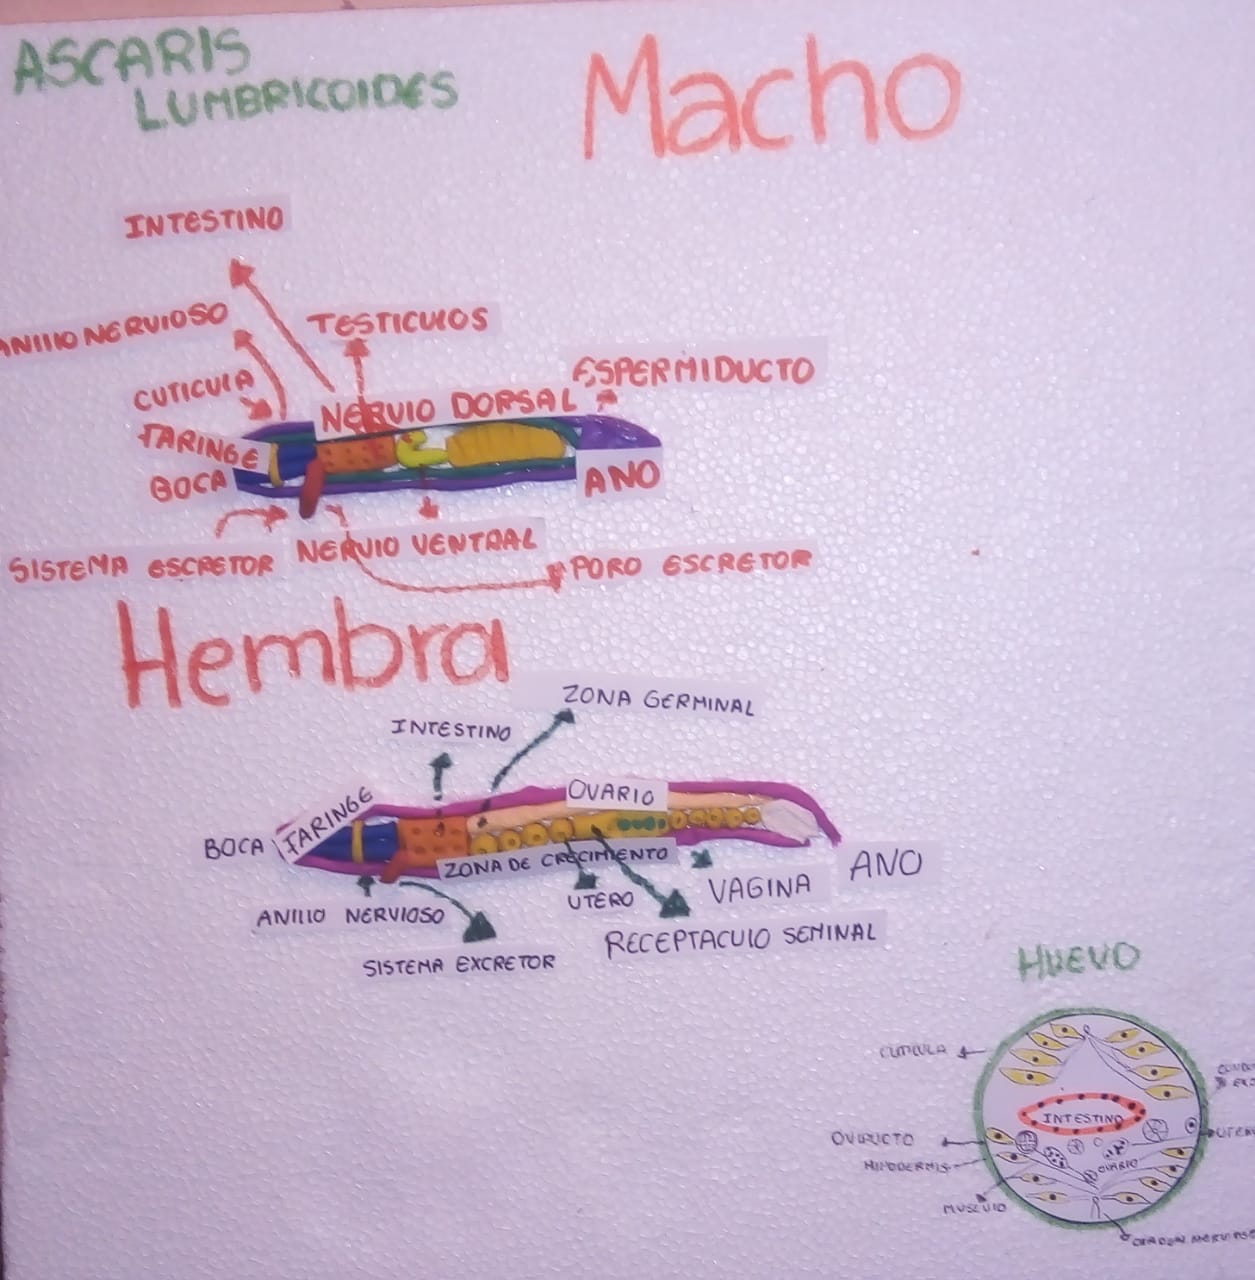 ASCARIS
LUMBRICOIDES
Macho
INTESTINO
ANILLO NERVIOSO
TESTICULOS
CUTICULA
ESPERMIDUCTO
NERVIO DORSAL
FARINGE
BOCA
ANO
SISTEMA ESCRETOR
NERVIO VENTRAL
PORO ESCRETOR
Hembra
ZONA GERMINAL
INTESTINO
OVARIO
FARINGE
BOCA
ZONA DE CRECIMIENTO
ANO
VAGINA
UTERO
ANILLO NERVIOSO
RECEPTACULO SEMINAL
SISTEMA EXCRETOR
HUEVO
CUTICULA
INTESTINO
OVIDUCTO
HIPODERMIS
OVARIO
MUSCULO